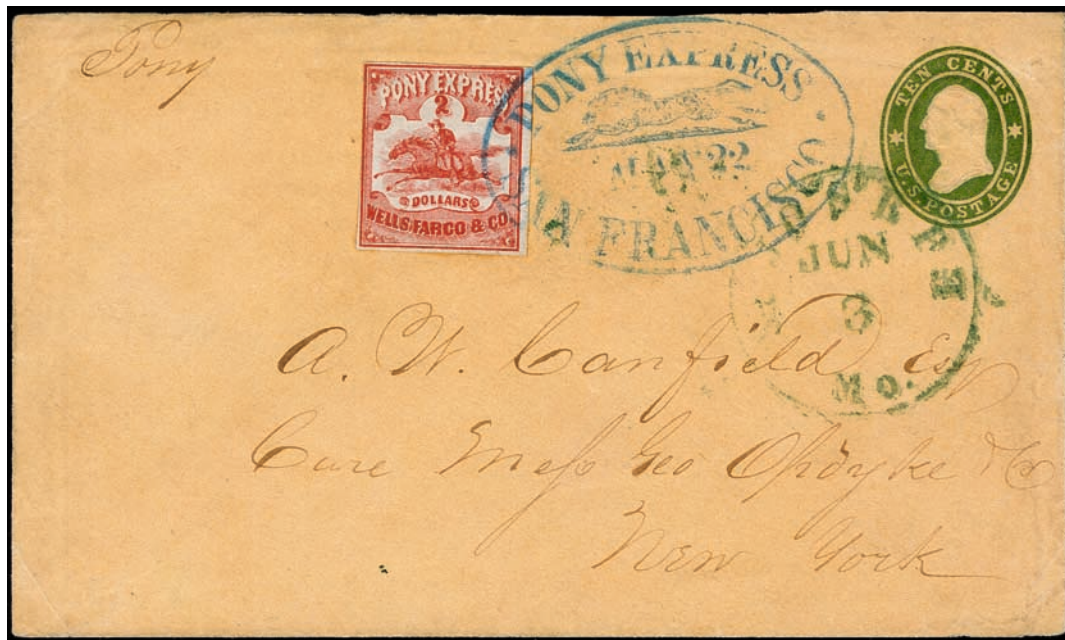 Pony
PONY EXPRESS
2
DOLLARS
WELLS, FARGO & CO.
PONY EXPRESS
MAY 22
SAN FRANCISCO
TEN CENTS
U.S. POSTAGE
JUN
3
MO.
A. W. Canfield Esq
Care Mess Geo Opdyke & Co
New York